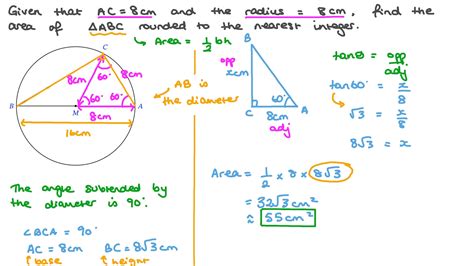 Given that AC = 8cm and the radius = 8cm, find the
area of △ABC rounded to the nearest integer.
Area = 1/2 bh
C
8cm
60°
8cm
60°
60°
B
M
8cm
A
16cm
AB is
the diameter
B
opp
xcm
60°
C
8cm
A
adj
tanθ = opp/adj
tan60° = x/8
√3 = x/8
8√3 = x
The angle subtended by
the diameter is 90°.
∠BCA = 90°
AC = 8cm BC = 8√3 cm
base height
Area = 1/2 × 8 × 8√3
= 32√3 cm²
≈ 55cm²